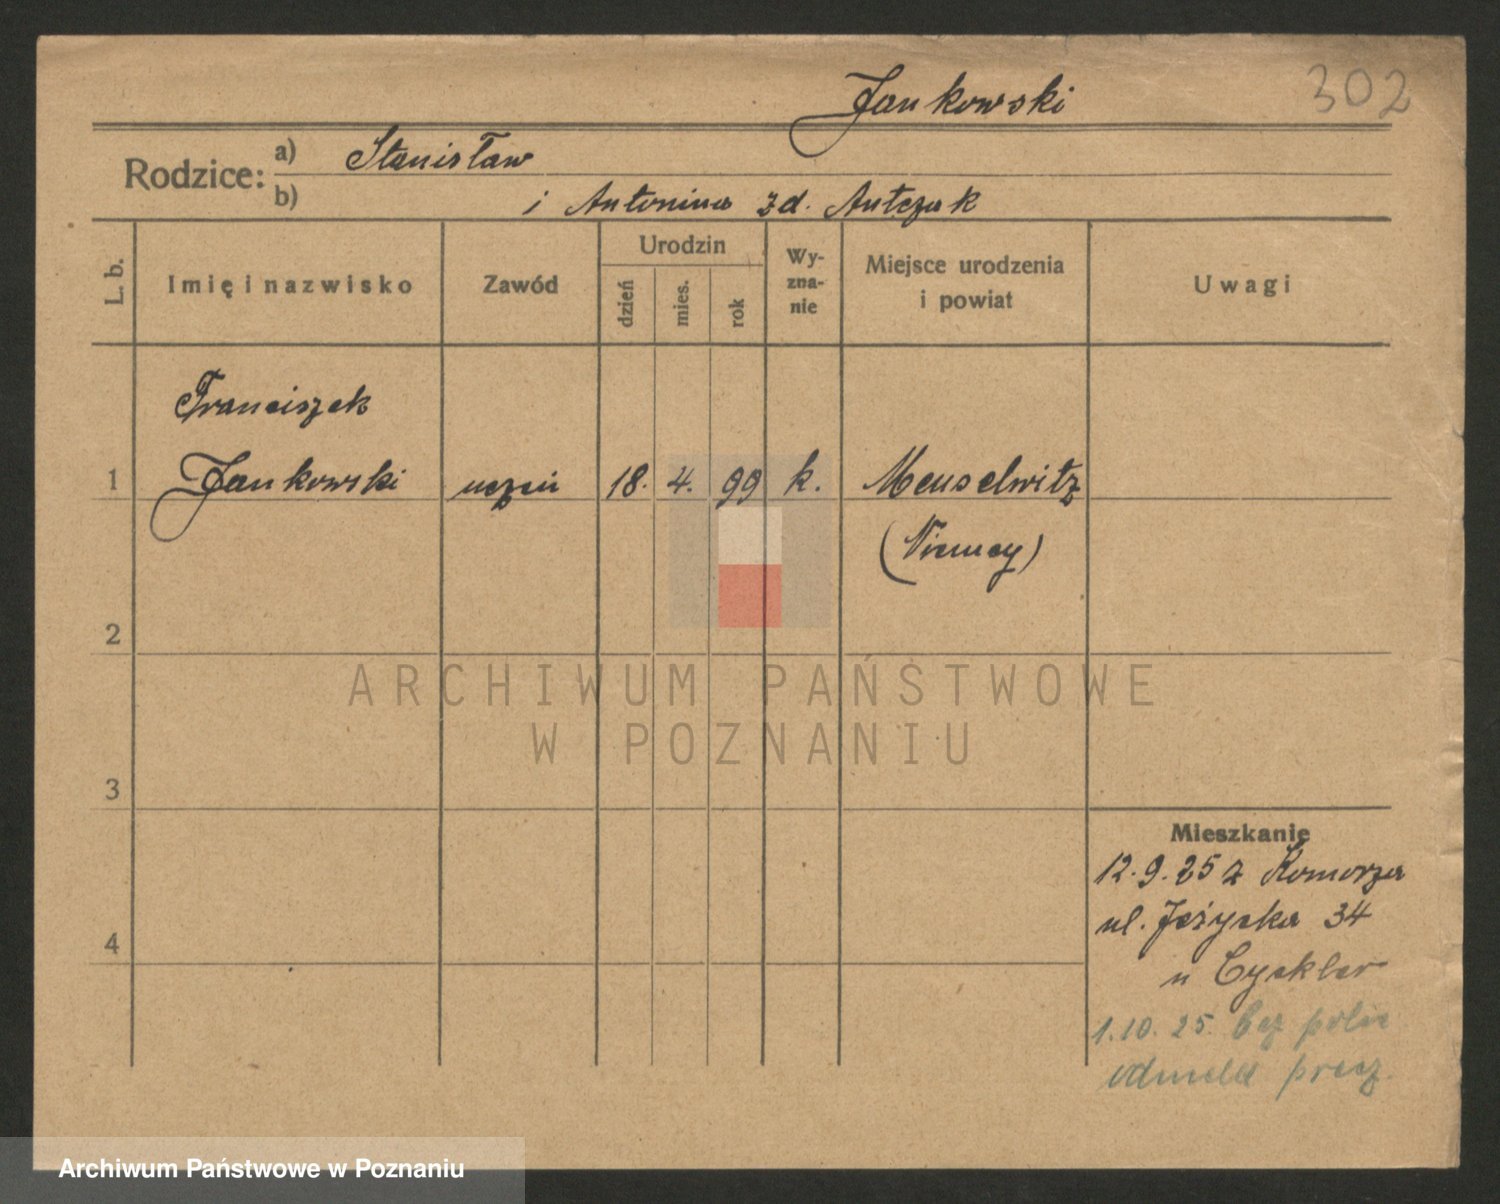 Jankowski
302
Rodzice:
a) Stanisław
b) i Antonina zd. Antczak
L. b.
Imię i nazwisko
Zawód
Urodzin
dzień
mies.
rok
Wy-
zna-
nie
Miejsce urodzenia
i powiat
Uwagi
Franciszek
1 Jankowski uczeń 18. 4. 99 k. Meuselwitz
(Niemcy)
2
ARCHIWUM PAŃSTWOWE
W POZNANIU
3
Mieszkanie
12.9.25 z Komorza
ul. Jeżycka 34
4
u Cyckler
1.10.25. bez polic
odmeld precz.
Archiwum Państwowe w Poznaniu